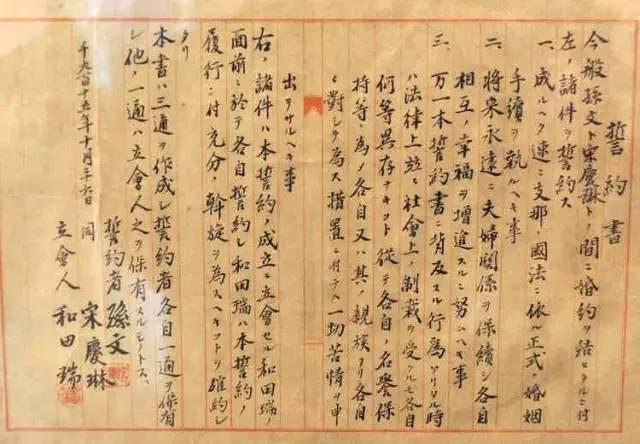 誓約書
今般孫文ト宋慶琳トノ間ニ婚約ヲ結ヒタルニ付
左ノ諸件ヲ誓約ス
一、成ルヘク速ニ支那ノ國法ニ依ル正式ノ婚姻
手續ヲ執ルヘキ事
二、將来永遠ニ夫婦関係ヲ保續シ各自
相互ノ幸福ヲ増進スルニ努ムヘキ事
三、万一本誓約書ニ背反スル行為アリタル時
ハ法律上並ニ社會上ノ制裁ヲ受クルモ各自
何等異存ナキコト従テ各自ノ名譽保
持等ノ為メ各自又ハ其ノ親族ヨリ各自
ニ對シテ為ス措置ニ付テハ一切苦情ヲ申
出テサルヘキ事
右ノ諸件ハ本誓約ノ成立ニ立會セル和田瑞ノ
面前ニ於テ各自誓約シ和田瑞ハ本誓約ノ
履行ニ付充分ノ斡旋ヲ為スヘキコトヲ確約シ
タリ
本書ハ三通ヲ作成シ誓約者各自一通ヲ保有
シ他ノ一通ハ立會人之ヲ保有スルモノトス
誓約者 孫文
千九百十五年十月二十六日 同 宋慶琳
立會人 和田瑞